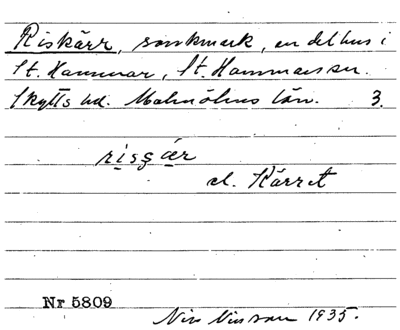 Riskärr, sankmark, en del hus i
St. Hammar, St. Hammars sn.
Skytts hd. Malmöhus län. 3.
risʒær
el. Kärret
Nr 5809
Nils Nilsson 1935.